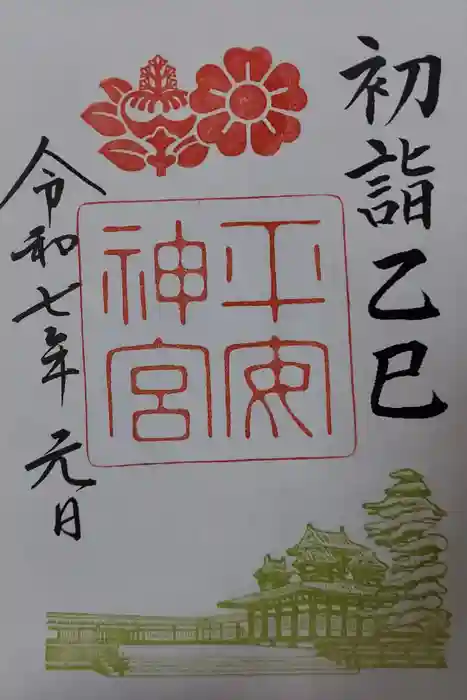 初詣乙巳
平安
神宮
令和七年元日